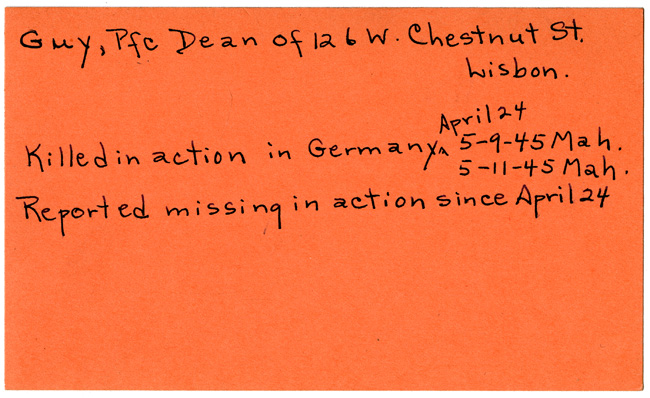 Guy, Pfc Dean of 126 W. Chestnut St.
Lisbon.
April 24
Killed in action in Germany ^ 5-9-45 Mah.
5-11-45 Mah.
Reported missing in action since April 24